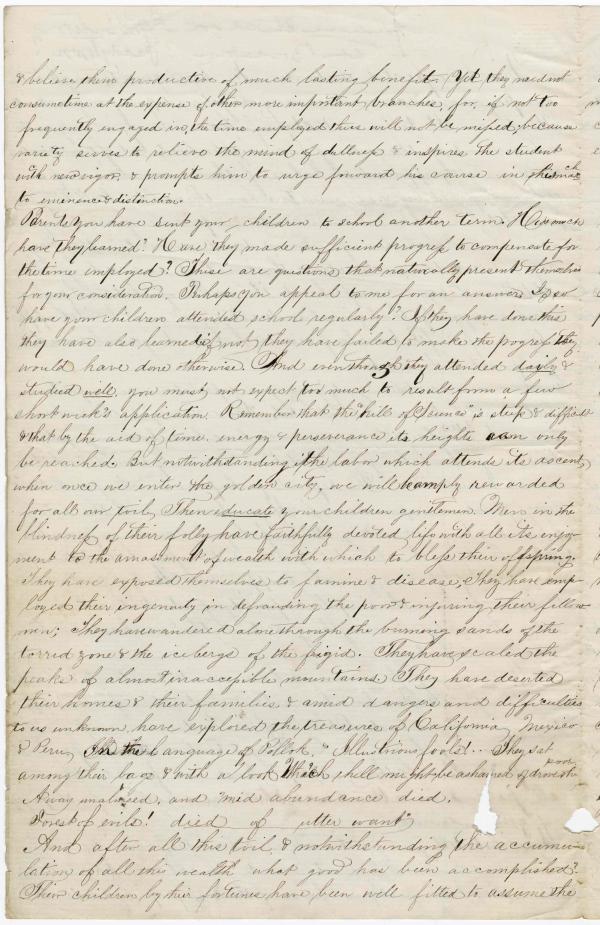 & believe them productive of much lasting benefit. Yet they need not
consume time at the expense of other more important branches, for, if not too
frequently engaged in, the time employed thus will not be missed, because
variety serves to relieve the mind of dullness & inspires the student
with new vigor, & prompts him to urge forward his course in his march
to eminence & distinction.
Parents you have sent your children to school another term. How much
have they learned? Have they made sufficient progress to compensate for
the time employed? These are questions that naturally present themselves
for your consideration. Perhaps you appeal to me for an answer. So
have your children attended school regularly? If they have done this
they have also learned; if not, they have failed to make the progress they
would have done otherwise. And even though they attended daily &
studied well, you must not expect too much to result from a few
short week's application. Remember that the "hill of Science" is steep & difficult
& that by the aid of time, energy & perseverance its heights can only
be reached. But notwithstanding the labor which attends its ascent,
when once we enter the golden city, we will be amply rewarded
for all our toil. Then educate your children gentlemen. Men in the
blindness of their folly have faithfully devoted life with all its enjoy-
ment to the amassment of wealth with which to bless their offspring.
They have exposed themselves to famine & disease, They have emp-
loyed their ingenuity in defrauding the poor & injuring their fellow
men; They have wandered alone through the burning sands of the
torrid zone & the icebergs of the frigid. They have scaled the
peaks of almost inaccessible mountains. They have deserted
their homes & their families & amid dangers and difficulties
to us unknown, have explored the treasures of California, Mexico
& Peru, In the language of Pollok, "Illustrious fools!.. They sat
among their bags & with a look which hell might be ashamed of drove the poor
Away unalmsed, and 'mid abundance died.
Sorest of evils! died of utter want"
And after all this toil & notwithstanding the accumu-
lation of all this wealth what good has been accomplished?
Their children by their fortunes have been well fitted to assume the